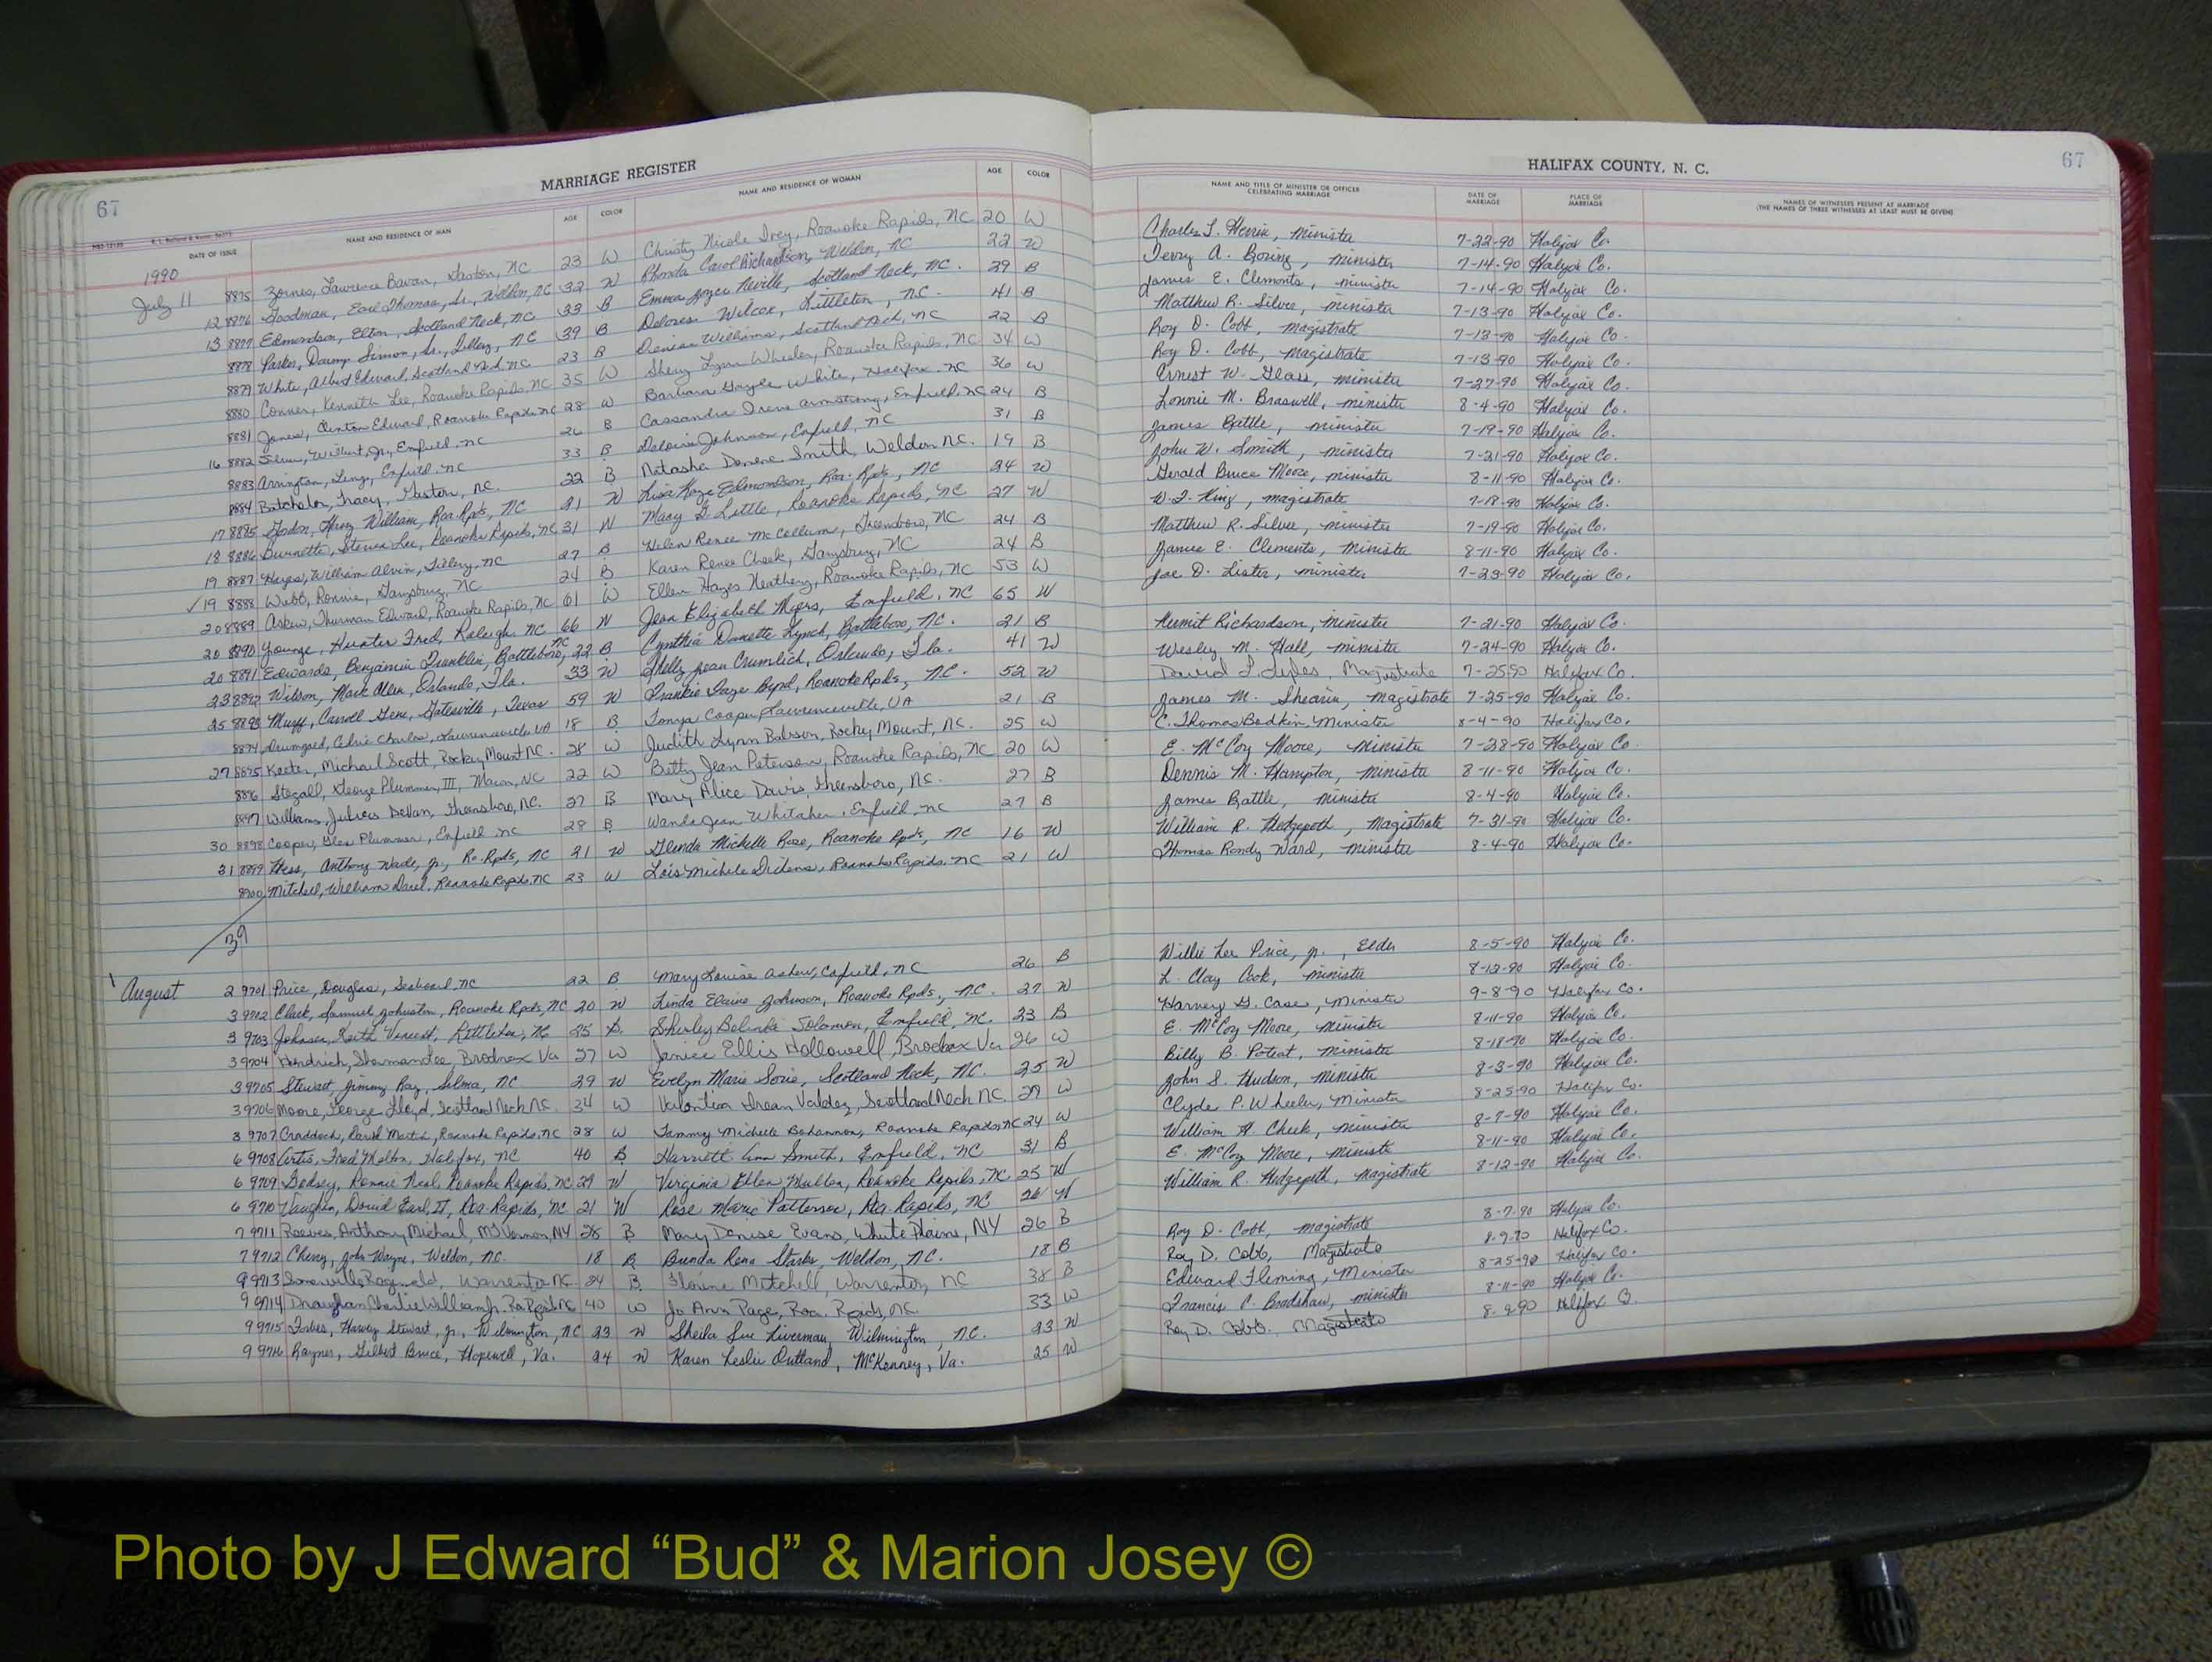 MARRIAGE REGISTER
HALIFAX COUNTY, N. C.
67
67
DATE OF ISSUE NAME AND RESIDENCE OF MAN AGE COLOR NAME AND RESIDENCE OF WOMAN AGE COLOR NAME AND TITLE OF MINISTER OR OFFICER CELEBRATING MARRIAGE DATE OF MARRIAGE PLACE OF MARRIAGE NAMES OF WITNESSES PRESENT AT MARRIAGE (THE NAMES OF THREE WITNESSES AT LEAST MUST BE GIVEN)
1990
July 11 8875 Zornes, Lawrence Gaston, NC 23 W Christy Nicole Ivey, Roanoke Rapids, NC 20 W Charles L. minister 7-22-90 Halifax Co.
12 8876 Goodman, Earl Thomas, Sr., Weldon, NC 32 W Rhonda Carol Richardson, Weldon, NC 22 W Terry A. Boring, minister 7-14-90 Halifax Co.
13 8877 Edmondson, Elton, Scotland Neck, NC 33 B Emma Joyce Neville, Scotland Neck, NC. 29 B James E. Clements, minister 7-14-90 Halifax Co.
8878 Parker, Danny Simon, Sr., Tillery, NC 39 B Delores Wilcox, Littleton, NC. 41 B Matthew R. Silver, minister 7-13-90 Halifax Co.
8879 White, Albert Edward, Scotland Neck, NC 23 B Williams, Scotland Neck, NC 22 B Roy D. Cobb, magistrate 7-13-90 Halifax Co.
8880 Conner, Kenneth Lee, Roanoke Rapids, NC 35 W Sherry Lynn Wheeler, Roanoke Rapids, NC 34 W Roy D. Cobb, magistrate 7-13-90 Halifax Co.
8881 Jones, Clinton Edward, Roanoke Rapids, NC 28 W Barbara Gayle White, Halifax NC 36 W Ernest W. Glass, minister 7-27-90 Halifax Co.
16 8882 Silver, Wilbert, Jr., Enfield, NC 26 B Cassandra Irene Armstrong, Enfield, NC 24 B Lonnie M. Braswell, minister 8-4-90 Halifax Co.
8883 Arrington, Enfield, NC 33 B Johnson, Enfield, NC 31 B James Battle, minister 7-19-90 Halifax Co.
8884 Batchelor, Tracy, Gaston, NC. 22 B Natasha Smith, Weldon NC. 19 B John W. Smith, minister 7-21-90 Halifax Co.
17 8885 William, Roa. Rpds, NC 21 W Lisa Kaye Edmondson, Roa. Rpds., NC 24 W Gerald Bruce Moore, minister 8-11-90 Halifax Co.
18 8886 Burnette, Steven Lee, Roanoke Rapids, NC 31 W Mary G. Little, Roanoke Rapids, NC 27 W W.T. King, magistrate 7-18-90 Halifax Co.
19 8887 Hayes, William Alvin, Tillery, NC 27 B Helen Renee McCollum, Greensboro, NC 24 B Matthew R. Silver, minister 7-19-90 Halifax Co.
✓19 8888 Webb, Ronnie, Garysburg, NC 24 B Karen Renee Cheek, Garysburg, NC 24 B James E. Clements, minister 8-11-90 Halifax Co.
20 8889 Askew, Thurman Edward, Roanoke Rapids, NC 61 W Ellen Hayes Roanoke Rapids, NC 53 W Joe D. Lister, minister 7-23-90 Halifax Co.
20 8890 Younge, Hunter Fred, Raleigh, NC 66 W Jean Elizabeth Myers, Enfield, NC 65 W
20 8891 Edwards, Benjamin Franklin, Battleboro, NC 22 B Cynthia Danette Lynch, Battleboro, NC. 21 B Kermit Richardson, minister 7-21-90 Halifax Co.
23 8892 Wilson, Mark Allen, Orlando, Fla. 33 W Shelly Jean Crumlich, Orlando, Fla. 41 W Wesley M. Hall, minister 7-24-90 Halifax Co.
25 8893 Murff, Carroll Gene, Gatesville, Texas 59 W Frankie Faye Byrd, Roanoke Rpds, NC. 52 W David L. Magistrate 7-25-90 Halifax Co.
8894 Drumgold, Cedric Charles, Lawrenceville, VA 18 B Tonya Cooper, Lawrenceville, VA 21 B James M. Shearin, magistrate 7-25-90 Halifax Co.
27 8895 Keeter, Michael Scott, Rocky Mount NC. 28 W Judith Lynn Batson, Rocky Mount, NC. 25 W C. Thomas Bodkin, Minister 8-4-90 Halifax Co.
8896 Stegall, George Plummer, III, Macon, NC 22 W Betty Jean Peterson, Roanoke Rapids, NC 20 W E. McCoy Moore, minister 7-28-90 Halifax Co.
8897 Williams, Julius DeVan, Greensboro, NC. 27 B Mary Alice Davis, Greensboro, NC. 27 B Dennis M. Hampton, minister 8-11-90 Halifax Co.
30 8898 Cooper, Glen Plummer, Enfield NC 28 B Wanda Jean Whitaker, Enfield, NC 27 B James Battle, minister 8-4-90 Halifax Co.
31 8899 Anthony Wade, Jr., Ro. Rpds, NC 21 W Glenda Michelle Rose, Roanoke Rpds, NC 16 W William R. Hedgepeth, Magistrate 7-31-90 Halifax Co.
8900 Mitchell, William Roanoke Rapids, NC 23 W Lois Michele Dickens, Roanoke Rapids, NC 21 W Thomas Randy Ward, minister 8-4-90 Halifax Co.
39
August 2 9701 Price, Douglas, Seaboard, NC 22 B Mary Louise Askew, Enfield, NC 26 B Willie Lee Price, Jr., Elder 8-5-90 Halifax Co.
3 9702 Clark, Samuel Johnston, Roanoke Rpds, NC 20 W Linda Elaine Johnson, Roanoke Rpds, NC. 27 W L. Clay Cook, minister 8-12-90 Halifax Co.
3 9703 Johnson, Keith Littleton, NC 25 B. Shirley Belinda Solomon, Enfield, NC. 23 B Harvey G. Case, Minister 9-8-90 Halifax Co.
3 9704 Hendrich, Brodnax Va 27 W Janice Ellis Hollowell, Brodnax Va 26 W E. McCoy Moore, minister 8-11-90 Halifax Co.
3 9705 Stewart, Jimmy Ray, Selma, NC 29 W Evelyn Marie Scotland Neck, NC. 25 W Billy B. Poteat, minister 8-18-90 Halifax Co.
3 9706 Moore, George Lloyd, Scotland Neck NC. 34 W Valdez, Scotland Neck NC. 29 W John S. Hudson, minister 8-3-90 Halifax Co.
3 9707 Craddock, David Roanoke Rapids, NC 28 W Tammy Michelle Bohannon, Roanoke Rapids, NC 24 W Clyde P. Wheeler, Minister 8-25-90 Halifax Co.
6 9708 Artis, Fred Halifax, NC 40 B Harriett Ann Smith, Enfield, NC 31 B William H. Cheek, minister 8-7-90 Halifax Co.
6 9709 Ronnie Neal, Roanoke Rapids, NC 29 W Virginia Ellen Roanoke Rapids, NC 25 W E. McCoy Moore, minister 8-11-90 Halifax Co.
6 9710 Vaughan, David Earl, II, Roa. Rapids, NC 21 W Rose Marie Patterson, Roa. Rapids, NC 26 W William R. Hedgepeth, Magistrate 8-12-90 Halifax Co.
7 9711 Reeves, Anthony Michael, Mt Vernon, NY 28 B Mary Denise Evans, White Plains, NY 26 B
7 9712 Cherry, John Wayne, Weldon, NC. 18 B Brenda Rena Weldon, NC. 18 B Roy D. Cobb, magistrate 8-7-90 Halifax Co.
9 9713 Warrenton NC. 24 B Mitchell, Warrenton, NC 38 B Roy D. Cobb, Magistrate 8-9-90 Halifax Co.
9 9714 Draughan, Charlie William Jr. Ro. Rpds NC 40 W Jo Ann Page, Roa. Rapids, NC. 33 W Edward Fleming, Minister 8-25-90 Halifax Co.
9 9715 Forbes, Harvey Stewart, Jr., Wilmington, NC 23 W Sheila Sue Liverman, Wilmington, NC. 23 W Francis C. Bradshaw, minister 8-11-90 Halifax Co.
9 9716 Raynor, Gilbert Bruce, Hopewell, Va. 24 W Karen Leslie Outland, McKenney, Va. 25 W Roy D. Cobb, Magistrate 8-9-90 Halifax Co.
Photo by J Edward “Bud” & Marion Josey ©